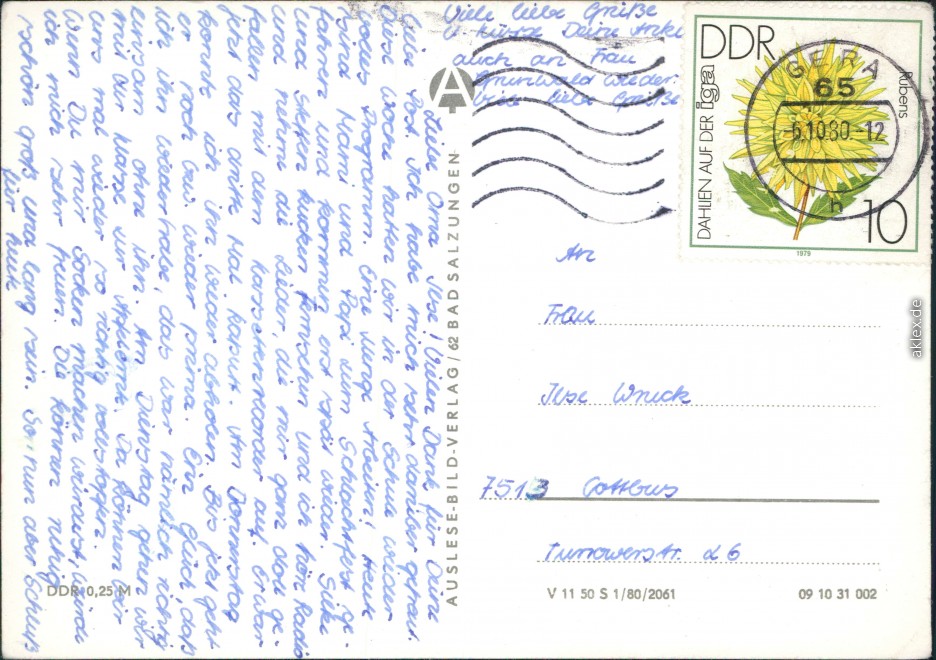 Liebe Oma Ilse! Vielen Dank für Deine
liebe Post. Ich habe mich sehr darüber gefreut.
Diese Woche hatten wir in der Schule wieder
volles Programm. Eine Menge Arbeiten! Heute
sind Mami und Papi zum Schlachtfest ge-
fahren und kommen erst spät wieder. Silke
und Steffen kucken Fernsehn und ich höre Radio
und nehme die Lieder, die mir ganz doll ge-
fallen mit dem Kassettenrecorder auf. Er war
jetzt das dritte Mal kaputt. Am Donnerstag
konnte ich ihn wieder abholen. Bis jetzt geht
er noch bzw. wieder prima. Ein Glück, daß
ich ihn wieder habe, das war nämlich richtig
einsam ohne ihn. Am Dienstag gehen wir
mit der Klasse zur Apfelernte. Da können wir
uns mal wieder so richtig vollstopfen.
Wenn Du mir Socken machen würdest, würde
ich mich sehr freuen. Die können ruhig
schön groß und lang sein. So nun aber Schluß
für heute.
Viele liebe Grüße
u. Küsse Deine Anke
auch an Frau
Grunwald wieder
viele liebe Grüße
A
AUSLESE-BILD-VERLAG / 62 BAD SALZUNGEN
DDR 0,25 M
DDR
DAHLIEN AUF DER iga
Rubens
10
1979
GERA
65
-6.10.80-12
h
An
Frau
Ilse Wnuck
7513 Cottbus
Turrowerstr. 26
V 11 50 S 1/80/2061
09 10 31 002
aklex.de